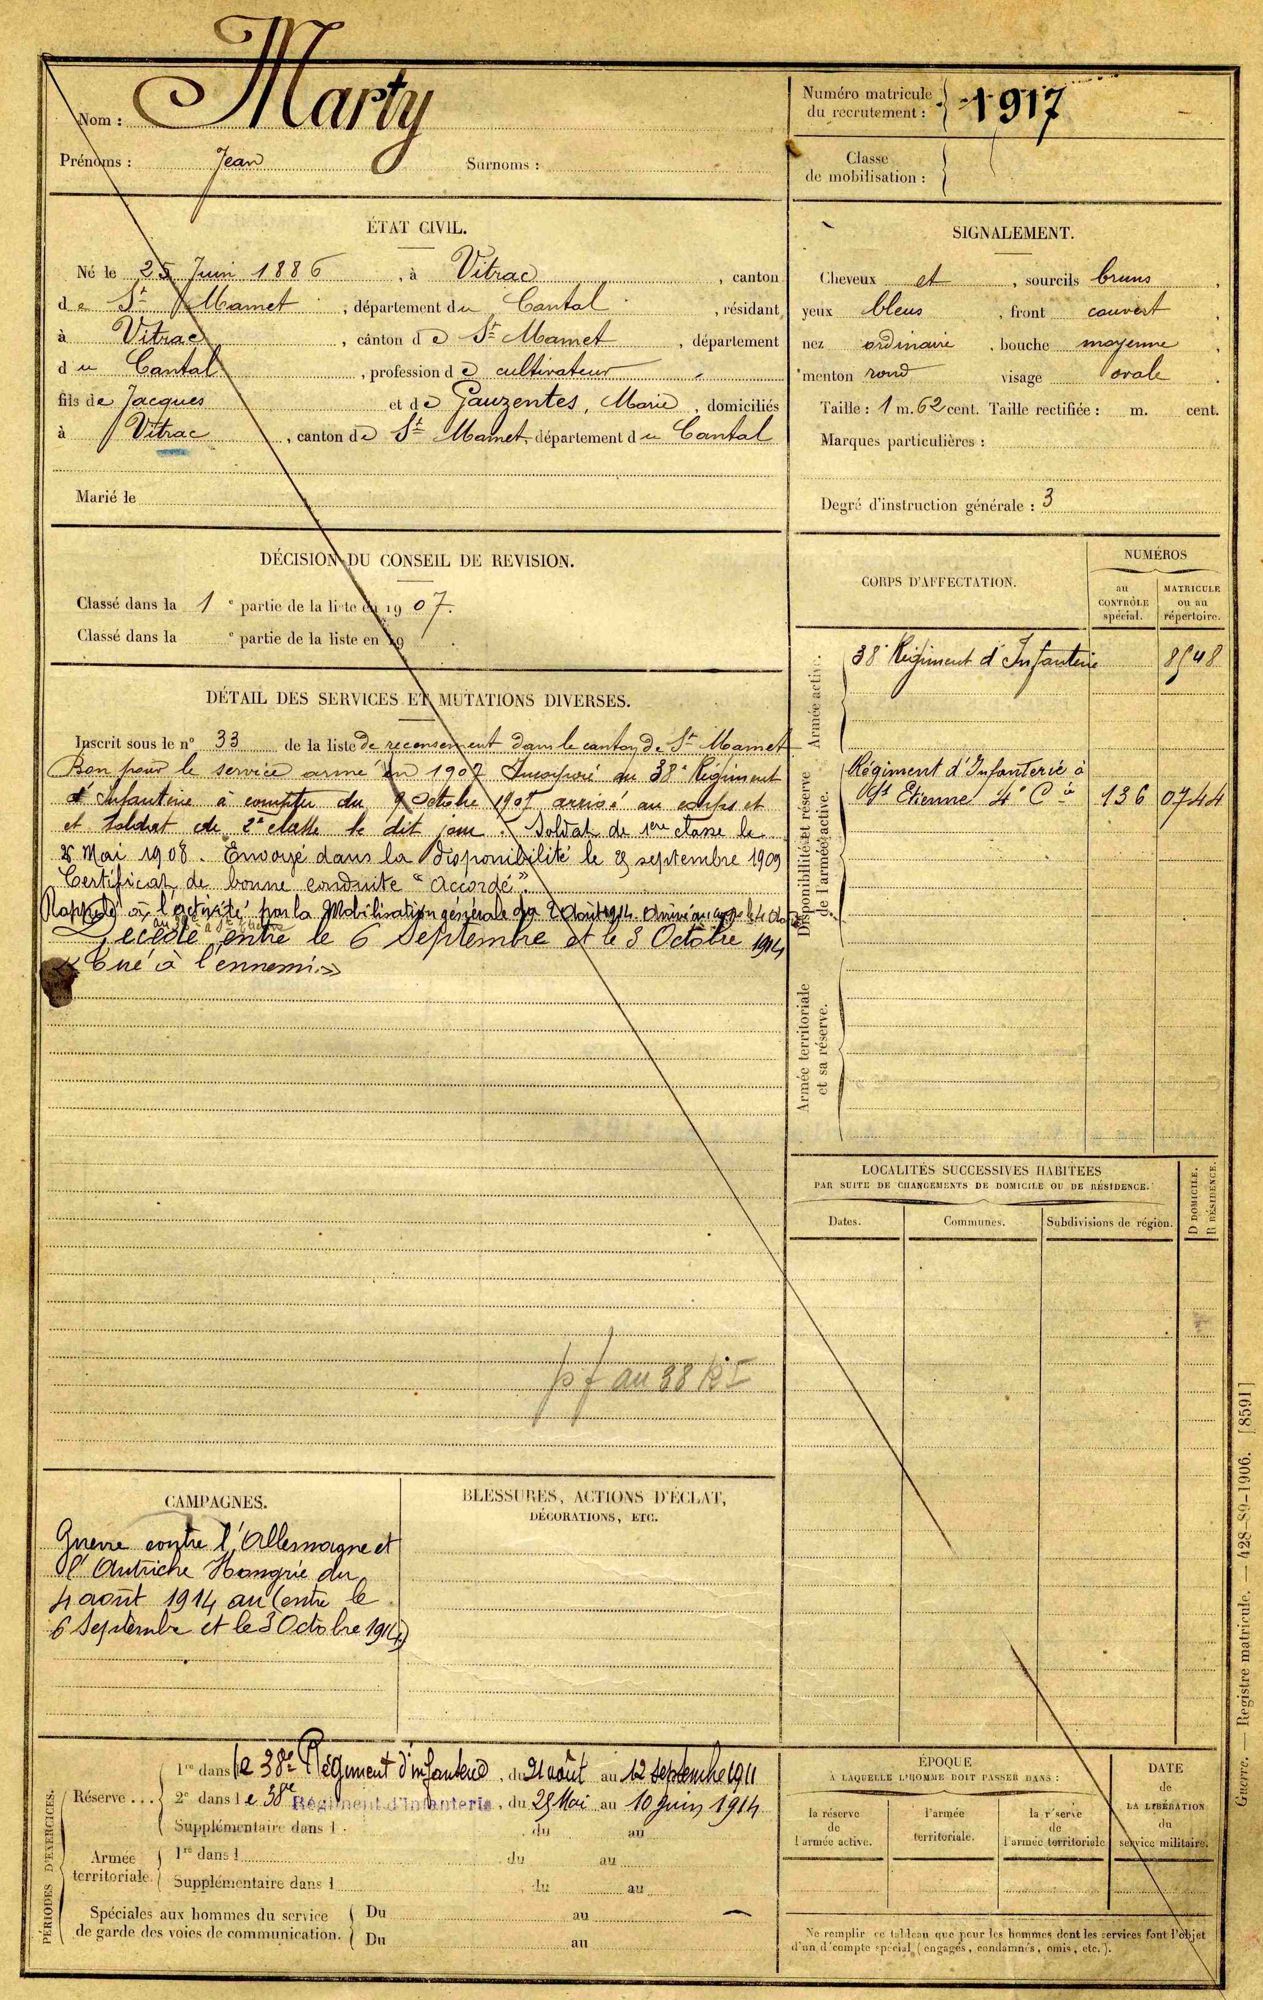 Nom : Marty
Prénoms : Jean Surnoms :
Numéro matricule
du recrutement : 1917
Classe
de mobilisation :
ÉTAT CIVIL.
Né le 25 Juin 1886, à Vitrac, canton
de St Mamet, département du Cantal, résidant
à Vitrac, canton de St Mamet, département
du Cantal, profession de cultivateur
fils de Jacques et de Gauzentes, Marie, domiciliés
à Vitrac, canton de St Mamet, département du Cantal
Marié le
SIGNALEMENT.
Cheveux et, sourcils bruns,
yeux bleus, front couvert,
nez ordinaire, bouche moyenne,
menton rond visage ovale.
Taille : 1 m. 62 cent. Taille rectifiée : m. cent.
Marques particulières :
Degré d'instruction générale : 3
DÉCISION DU CONSEIL DE REVISION.
Classé dans la 1e partie de la liste en 1907.
Classé dans la e partie de la liste en 19 .
DÉTAIL DES SERVICES ET MUTATIONS DIVERSES.
Inscrit sous le n° 33 de la liste de recensement dans le canton de St Mamet
Bon pour le service armé en 1907 Incorporé au 38e Régiment
d'Infanterie à compter du 9 Octobre 1907 arrivé au corps et
et soldat de 2e classe le dit jour. Soldat de 1ere classe le
Mai 1908. Envoyé dans la disponibilité le septembre 1909
Certificat de bonne conduite "Accordé".
Rappelé à l'activité par la Mobilisation générale du 2 Août 1914. Arrivé au corps le 4 dto
Décédé entre le 6 Septembre et le 3 Octobre 1914
« Tué à l'ennemi »
pf au 38 RI
CORPS D'AFFECTATION.
NUMÉROS
au
CONTRÔLE
spécial.
MATRICULE
ou au
répertoire.
Armée active.
38e Régiment d'Infanterie 8548
Disponibilité et réserve
de l'armée active.
Régiment d'Infanterie à
St Etienne 4e Cie 136 0744
Armée territoriale
et sa réserve.
LOCALITÉS SUCCESSIVES HABITÉES
PAR SUITE DE CHANGEMENTS DE DOMICILE OU DE RÉSIDENCE.
Dates. Communes. Subdivisions de région.
D DOMICILE.
R RÉSIDENCE.
CAMPAGNES.
Guerre contre l'Allemagne et
l'Autriche Hongrie du
4 août 1914 au (entre le
6 Septembre et le 3 Octobre 1914)
BLESSURES, ACTIONS D'ÉCLAT,
DÉCORATIONS, ETC.
PÉRIODES D'EXERCICES.
Réserve ...
1re dans le 38e Régiment d'infanterie, du 21 août au 12 septembre 1911
2e dans le 38e Régiment d'Infanterie, du 25 Mai au 10 juin 1914
Supplémentaire dans l . du au
Armée
territoriale.
1re dans l du au
Supplémentaire dans l du au
Spéciales aux hommes du service
de garde des voies de communication.
Du au
Du au
ÉPOQUE
À LAQUELLE L'HOMME DOIT PASSER DANS :
la réserve
de
l'armée active.
l'armée
territoriale.
la réserve
de
l'armée territoriale
DATE
de
LA LIBÉRATION
du
service militaire.
Ne remplir ce tableau que pour les hommes dont les services font l'objet
d'un décompte spécial (engagés, condamnés, omis, etc.).
Guerre. — Registre matricule. — 428-89-1906. [8591]